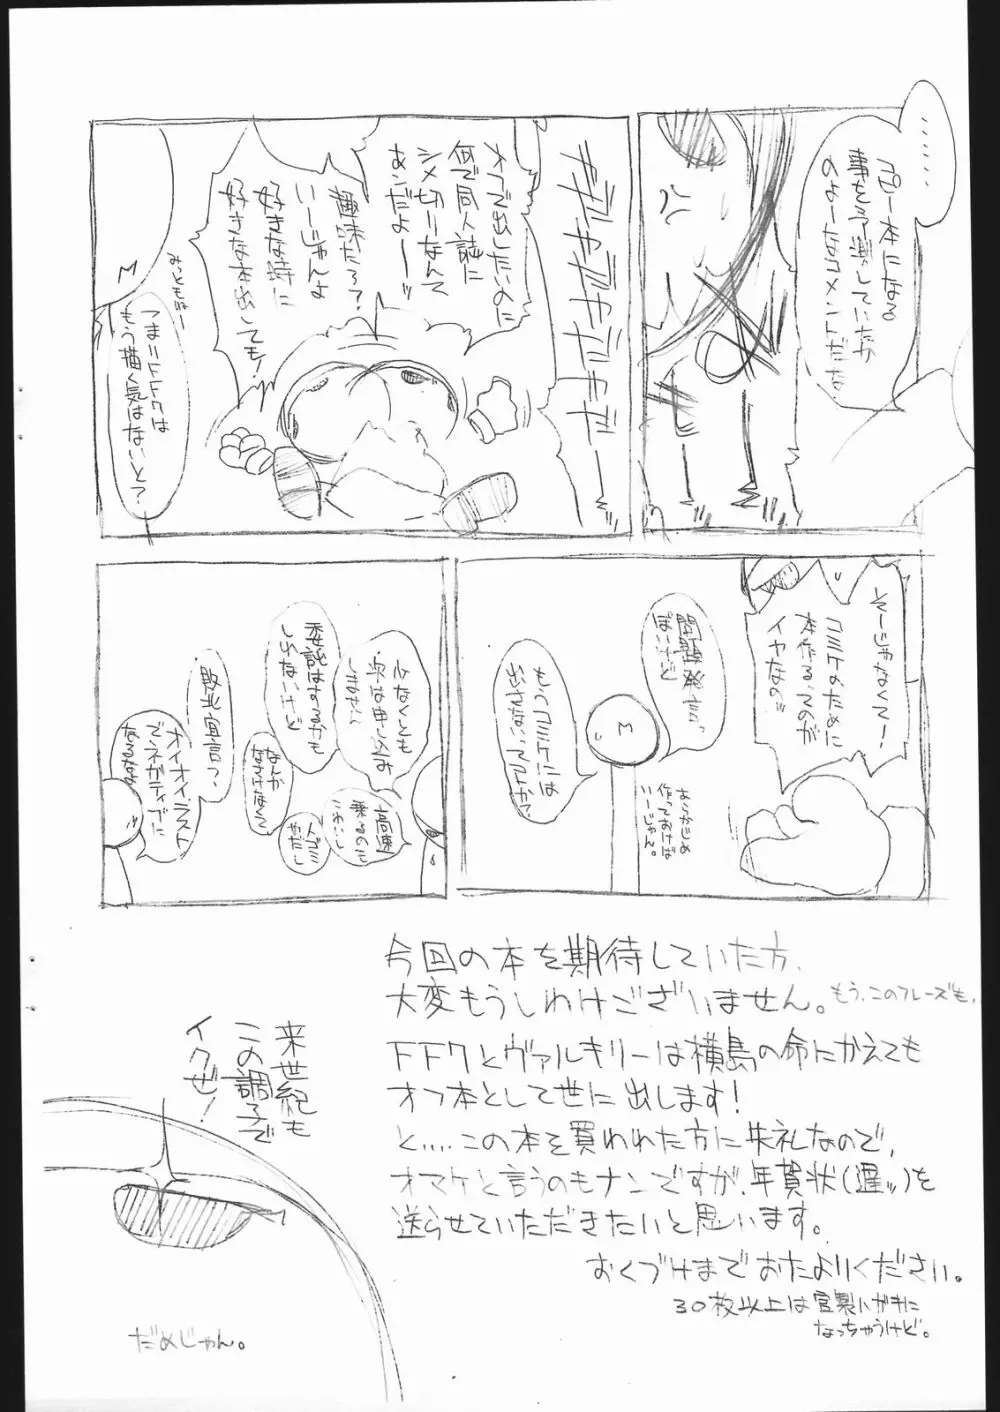 ……
コピー本になる
事を予測していたか
のよーなコメントだな
ヤダヤダヤダヤダ
オフで出したいのに
何で同人誌に
シメ切りなんて
あんだよーッ
趣味だろ?
いーじゃんよ
好きな時に
好きな本出しても!
みっともねー
M
つまりFF7は
もう描く気はないと?
そーじゃなくてー!
コミケのために
本作るってのが
イヤなの!!
問題発言っ
ぽいけど
M
もうコミケには
出さないってコトか?
あらかじめ
作っておけば
いーじゃん。
少なくとも
次は申し込み
しません
委託はするかも
しれないけど
高速
乗るのも
こわいし
人ゴミ
やだし
なんか
なさけなくて
敗北宣言?
オイオイ、ラスト
でネガティブに
なるなよ
今回の本を期待していた方、
大変もうしわけございません。もう、このフレーズも、
FF7とヴァルキリーは横島の命にかえても
オフ本として世に出します!
と‥‥この本を買われた方に失礼なので、
オマケと言うのもナンですが、年賀状(遅ッ)を
送らせていただきたいと思います。
おくづけまでおたよりください。
30枚以上は官製ハガキに
なっちゃうけど。
来世紀も
この調子で
イクぜ!
だめじゃん。